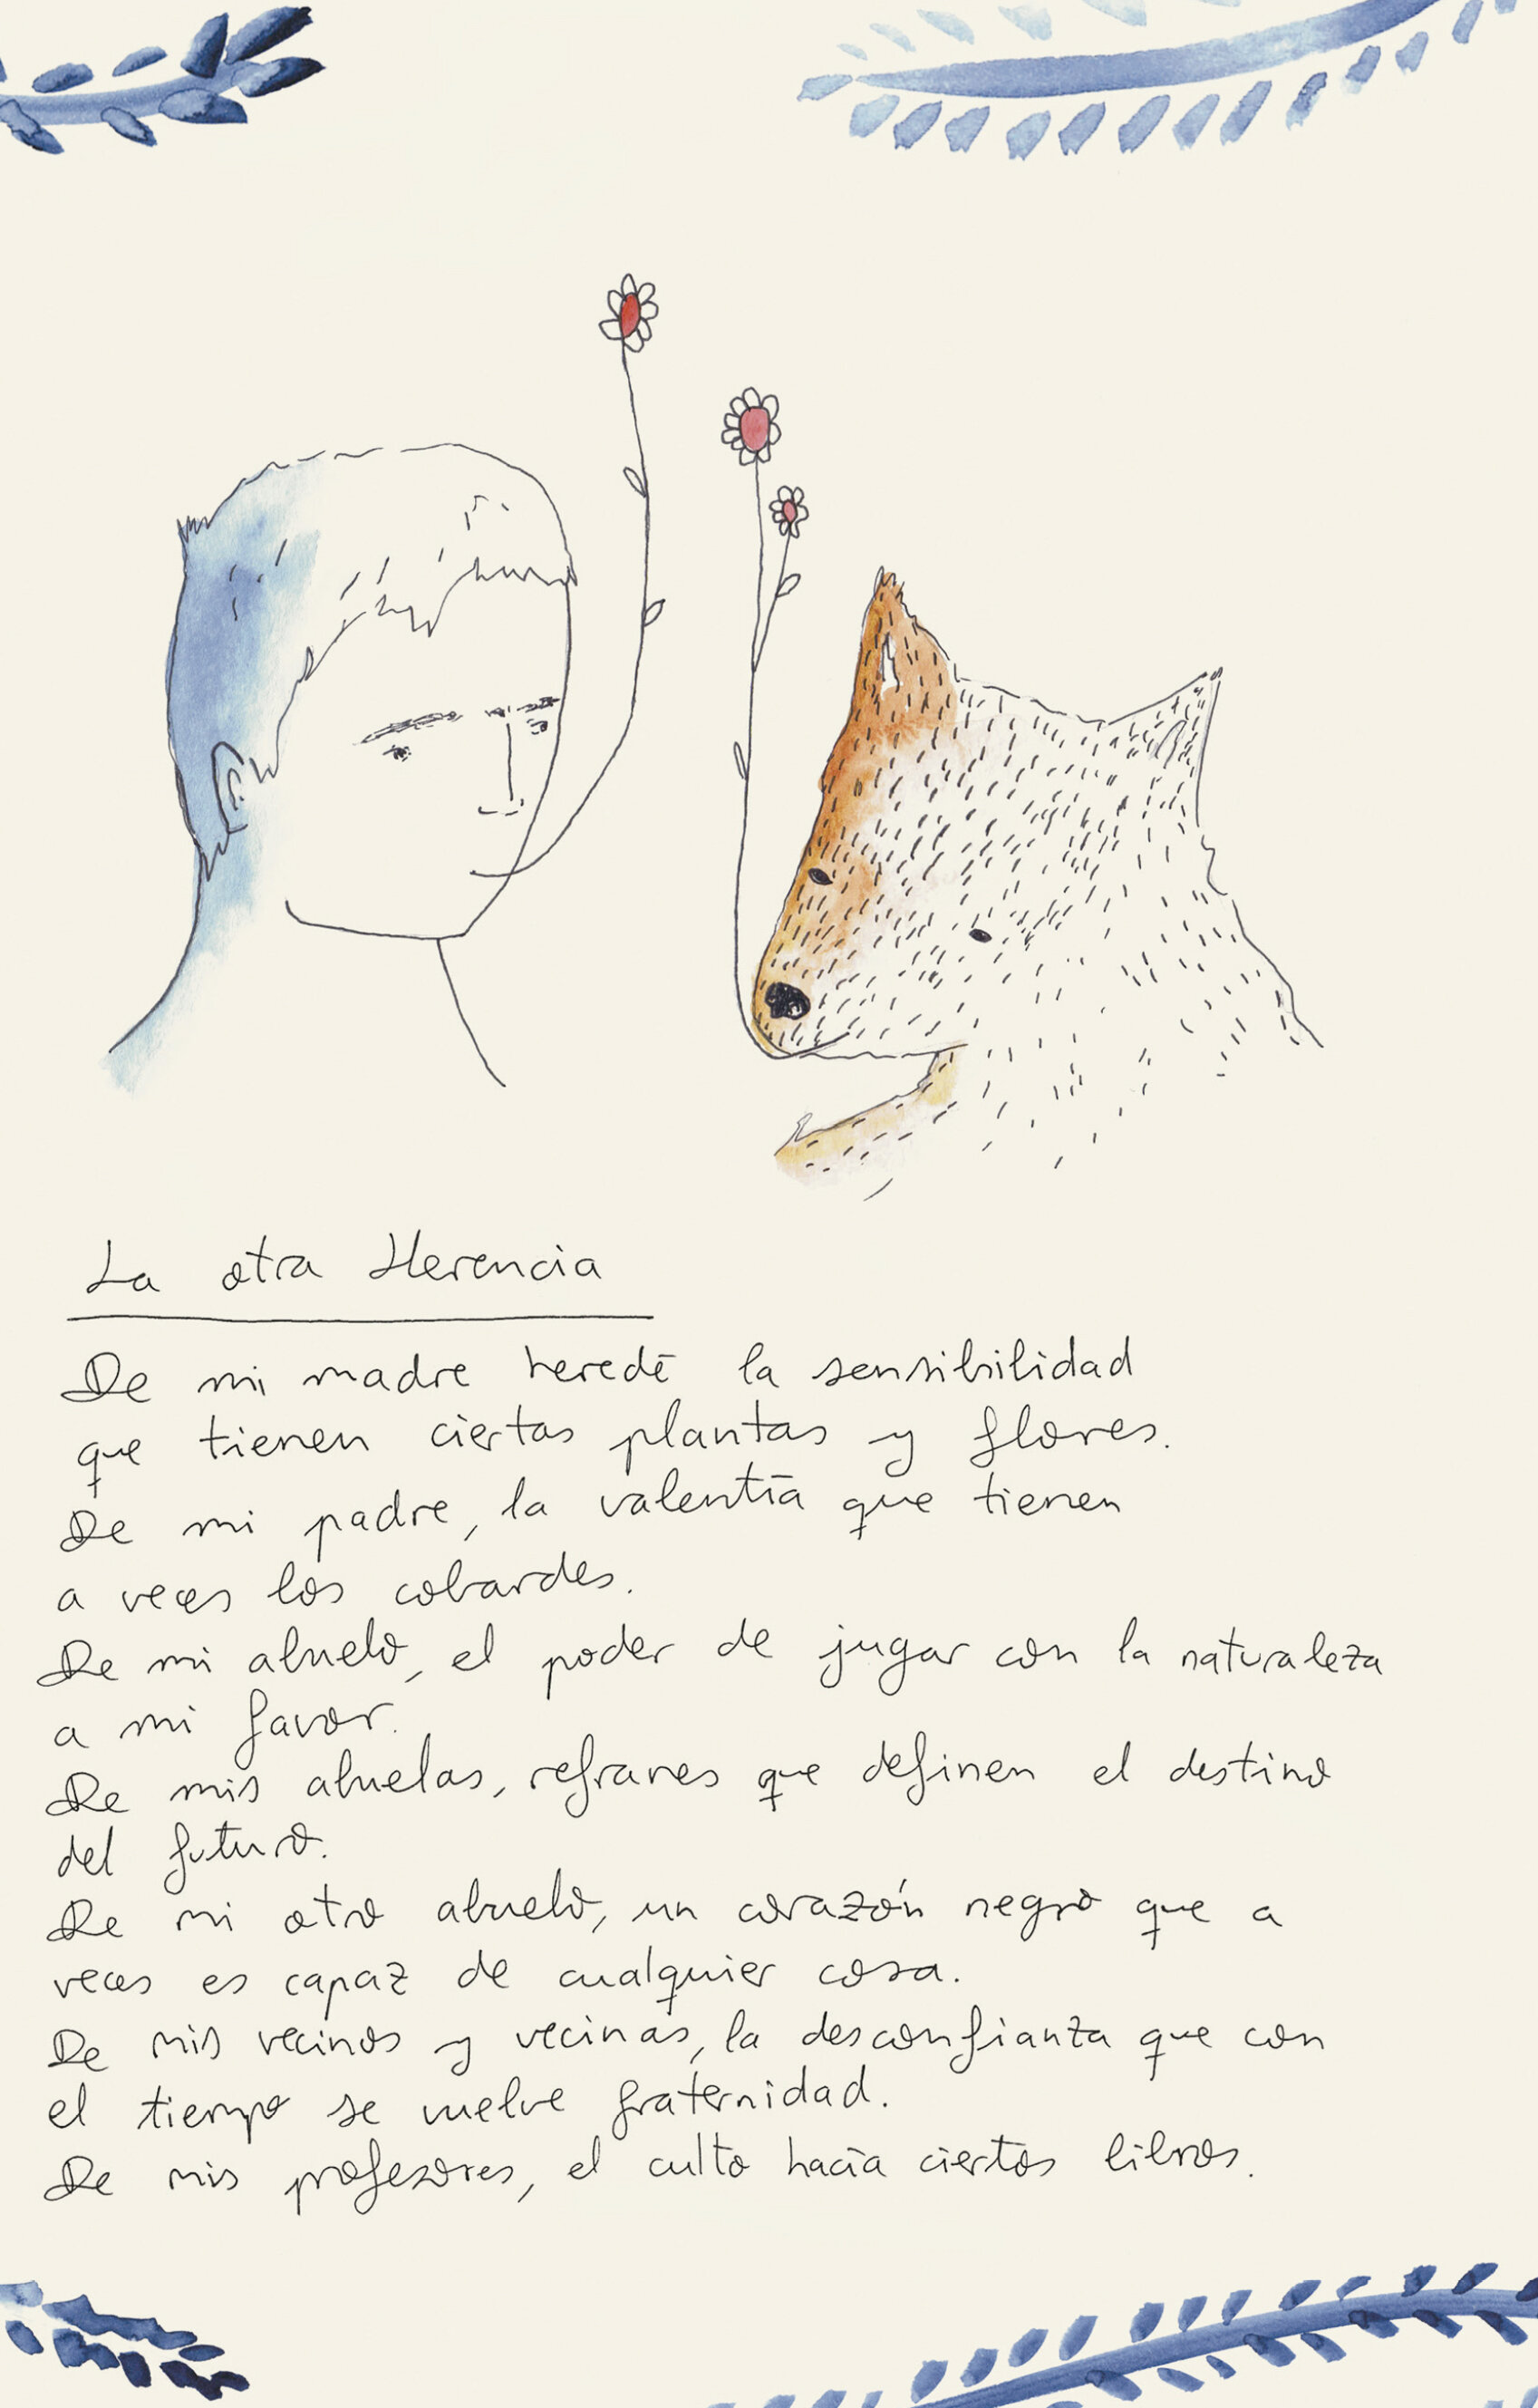 La otra Herencia
De mi madre heredé la sensibilidad
que tienen ciertas plantas y flores.
De mi padre, la valentía que tienen
a veces los cobardes.
De mi abuelo, el poder de jugar con la naturaleza
a mi favor.
De mis abuelas, refranes que definen el destino
del futuro.
De mi otro abuelo, un corazón negro que a
veces es capaz de cualquier cosa.
De mis vecinos y vecinas, la desconfianza que con
el tiempo se vuelve fraternidad.
De mis profesores, el culto hacia ciertos libros.